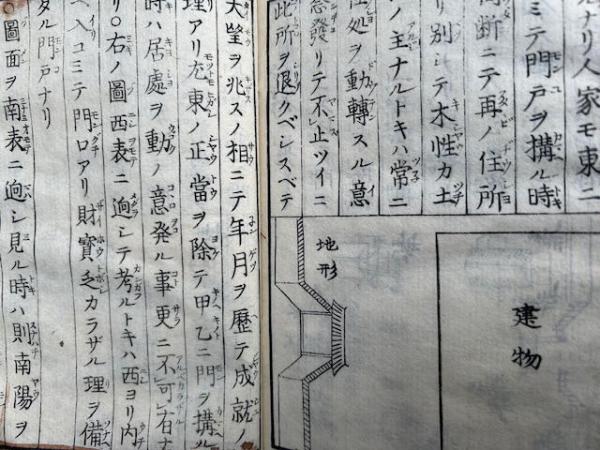 ナリ人家モ東ニ
ミテ門戸ヲ搆ル時
間断ニテ再ノ住所
リ別シテ木性カ土
ノ主ナルトキハ常ニ
処ヲ動轉スル意
念發リテ不止ツイニ
此所ヲ退クベシスベテ
建物
地形
大望ヲ兆スノ相ニテ年月ヲ歴テ成就ノ
理アリ尤東ノ正當ヲ除テ甲乙ニ門ヲ搆ル
時ハ居處ヲ動ノ意発ル事更ニ不可有ナ
リ○右ノ圖西表ニ廻シテ考ルトキハ西ヨリ内
ヘ入コミテ門口アリ財寳乏カラザル理ヲ備
タル門戸ナリ
○圖面ヲ南表ニ廻シ見ル時ハ則南陽ヲ